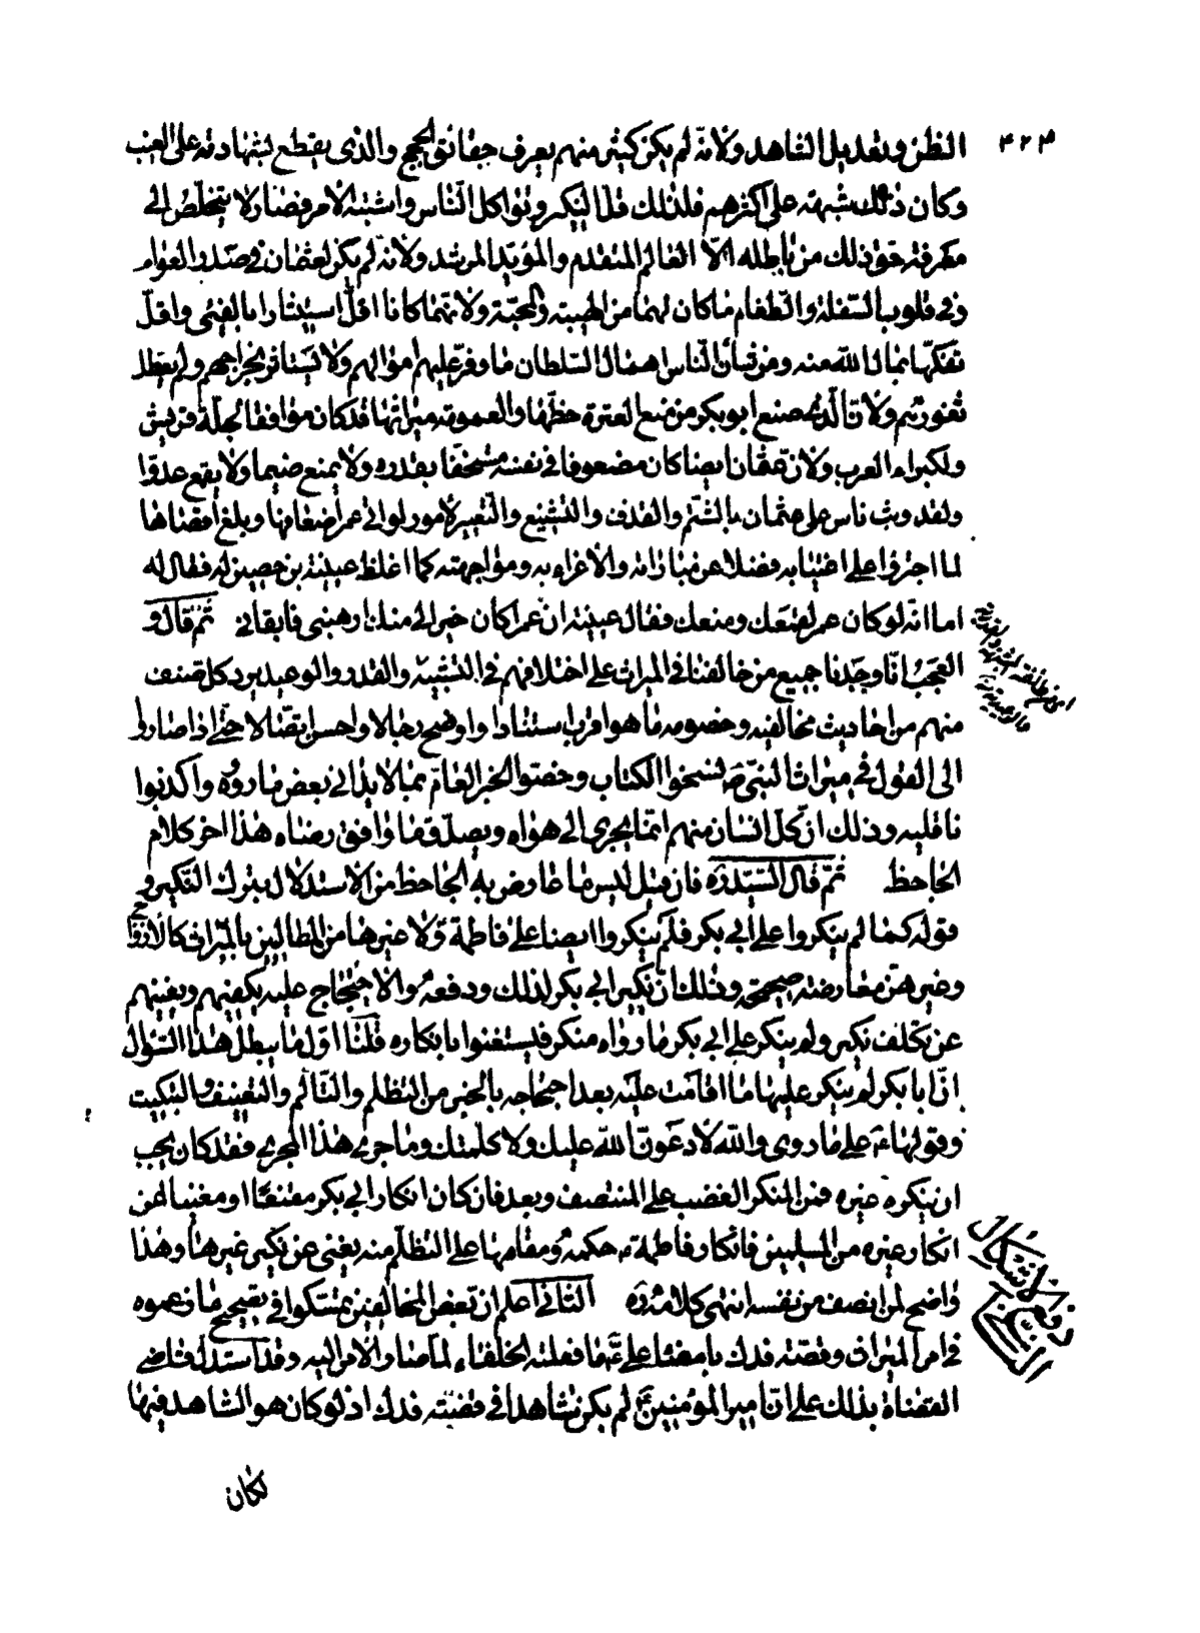 ٤٢٣
الظن وتعديل الشاهد ولانه لم يكن كثير منهم يعرف حقائق الحجج والذى يقطع بشهادته على الغيب
وكان ذلك شبهة على اكثرهم فلذلك قل النكير وتواكل الناس واشتبه الامر فصار لا يتخلص الى
معرفة حق ذلك من باطله الا العالم المتقدم والمؤيد المرشد ولانه لم يكن لعثمان فى صدور العوام
وفى قلوب السفلة والطغام ما كان لهما من الهيبة والمحبة ولانهما كانا اقل استيثارا بالفيئ واقل
تفكها بمال الله منه ومن شأن الناس اهمال السلطان ما وفر عليهم اموالهم ولا يستأثر بخراجهم ولم يعطل
ثغورهم ولان الذى صنع ابو بكر من منع العترة حظها والعمومة ميراثها قد كان موافقا لجلة قريش
ولكبراء العرب ولان عثمان ايضا كان مضعوفا فى نفسه مستخفا بقدره ولا يمنع ضيما ولا يقمع عدوا
ولقد وثب ناس على عثمان بالشتم والقذف والتشنيع والتعيير لأمور لو اتى عمر اضعافها وبلغ اقصاها
لما اجترؤا على اغتيابه فضلا عن مبارزته والاغراء به ومواجهته كما اغلظ عيينة بن حصين له فقال له
اما انه لو كان عمر لقمعك ومنعك فقال عيينة ان عمر كان خيرا لى منك ارهبنى فابقانى ثم قال و
العجب انا وجدنا جميع من خالفنا فى الميراث على اختلافهم فى التشبيه والقدر والوعيد يرد كل صنف
منهم من احاديث مخالفيه وخصومه ما هو اقرب استنادا واوضح رجالا واحسن اتصالا حتى اذا صاروا
الى القول فى ميراث النبى ص نسخوا الكتاب وخصوا الخبر العام بما لا يدانى بعض ما رووه واكذبوا
ناقليه وذلك ان كل انسان منهم انما يجرى الى هواه ويصدق ما وافق رضاه هذا اخر كلام
الجاحظ ثم قال السيد ره فان قيل ليس ما عارض به الجاحظ من الاستدلال بترك النكير و
قوله كما لم ينكروا على ابى بكر فلم ينكروا ايضا على فاطمة ع ولا غيرها من المطالبين بالميراث كالازواج
وغيرهن معارضة صحيحة وذلك ان نكير ابى بكر لذلك ودفعه والاحتجاج عليه يكفيهم ويغنيهم
عن تكلف نكير ولم ينكر على ابى بكر ما رواه منكر فيستغنوا بانكاره قلنا اول ما يبطل هذا السؤال
ان ابا بكر لم ينكر عليها ما اقامت عليه بعد احتجاجه بالخبر من التظلم والتألم والتعنيف والتبكيت
وقولها ع على ما روى والله لادعون الله عليك ولا كلمتك وما جرى هذا المجرى فقد كان يجب
ان ينكره غيره فمن المنكر الغضب على المنتصف وبعد فان كان انكار ابى بكر مقنعا او مغنيا عن
انكار غيره من المسلمين فانكار فاطمة ع حكمه ومقامها على التظلم منه يغنى عن نكير غيرها وهذا
واضح لمن انصف من نفسه انتهى كلامه ره الثانى اعلم ان بعض المخالفين تمسكوا فى تصحيح ما زعموه
فى امر الميراث وقصة فدك بامضاء على ع ما فعلته الخلفاء لما صار الامر اليه وقد استدل قاضى
القضاة بذلك على ان امير المؤمنين ع لم يكن شاهدا فى قضية فدك اذ لو كان هو الشاهد فيها
لكان